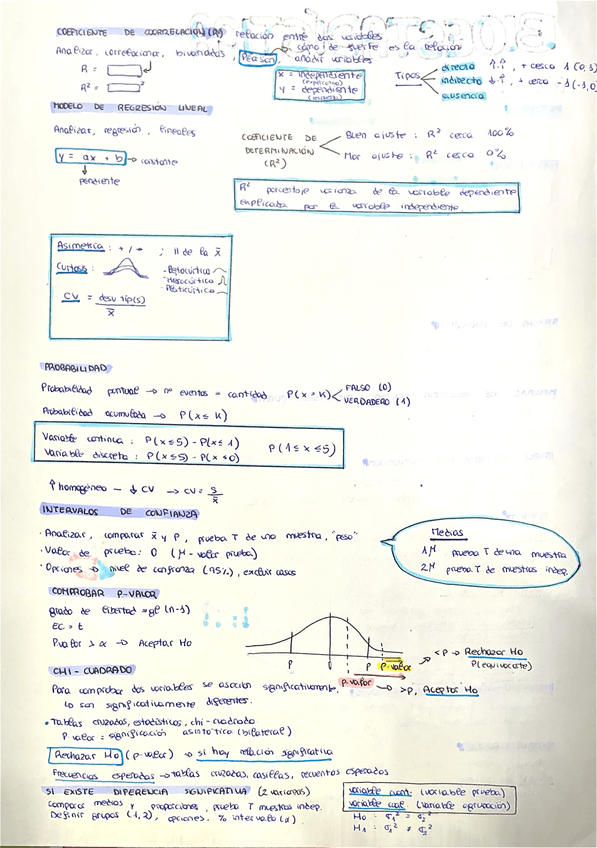 COEFICIENTE DE CORRELACIÓN (R) relación entre dos variables
cómo de fuerte es la relación
Analizar, correlacionar, bivariadas, Pearson, añadir variables
R =
R² =
x = independiente
(explicativa)
y = dependiente
(respuesta)
Tipos
directa ↑↑, + cerca 1 (0,1)
indirecta ↓↑, + cerca -1 (-1,0)
ausencia
MODELO DE REGRESIÓN LINEAL
Analizar, regresión, lineales
y = ax + b → constante
pendiente
COEFICIENTE DE
DETERMINACIÓN
(R²)
Buen ajuste : R² cerca 100%
Mar ajuste : R² cerca 0%
R² porcentaje varianza de la variable dependiente
explicada por la variable independiente.
Asimetría : + / - ; || de la x̄
Curtosis :
CV = desv típ(s)
x̄
PROBABILIDAD
Probabilidad puntual → nº eventos = cantidad P(x = K)
FALSO (0)
VERDADERO (1)
Probabilidad acumulada → P(x ≤ K)
Variable continua : P(x≤5) - P(x≤1)
Variable discreta : P(x≤5) - P(x≤0)
P(1≤x≤5)
↑ homogéneo — ↓ CV → CV = s/x̄
INTERVALOS DE CONFIANZA
· Analizar, comparar x̄ y P, prueba T de una muestra, "peso"
· Valor de prueba: 0 (M - valor prueba)
· Opciones → nivel de confianza (95%), excluir casos
Medias
1M prueba T de una muestra
2M prueba T de muestras indep.
COMPROBAR P-VALOR
grado de libertad = gl (n-1)
EC = t
Pvalor > α → Aceptar Ho
P P P-valor
<P → Rechazar Ho
P(equivocarte)
P-valor → >P, Aceptar Ho
CHI-CUADRADO
Para comprobar dos variables se asocian significativamente,
lo son significativamente diferentes.
· Tablas cruzadas, estadísticos, chi-cuadrado
P valor = significación asintótica (bilateral)
Rechazar Ho (p-valor) → si hay relación significativa
Frecuencias esperadas → tablas cruzadas, casillas, recuentos esperados
SI EXISTE DIFERENCIA SIGNIFICATIVA (2 varianzas)
Comparar medias y proporciones, prueba T muestras indep.
Definir grupos (1,2), opciones, % intervalo
variable cuant. (variable prueba)
variable cual. (variable agrupación)
H0 : σ1² = σ2²
H1 : σ1² ≠ σ2²